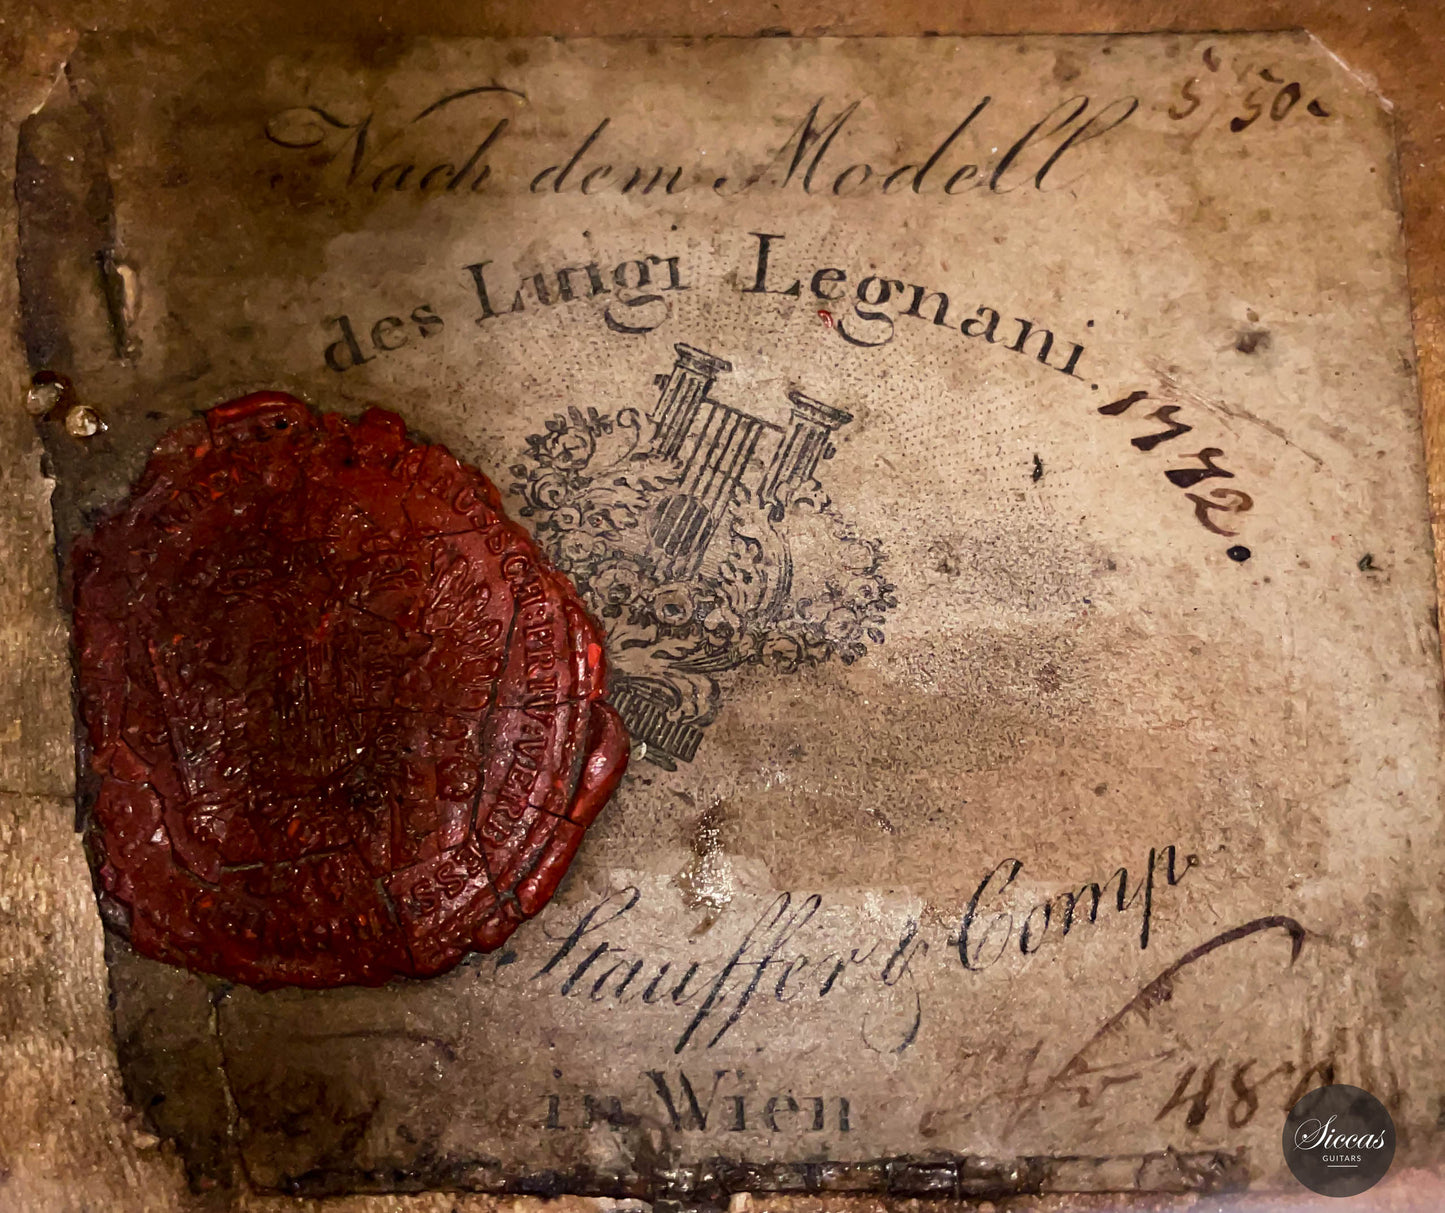 5 50
Nach dem Modell
des Luigi Legnani.
1772.
AUSSCHL: PRIV: VERB
Stauffer & Comp.
in Wien
No 480
Siccas
GUITARS